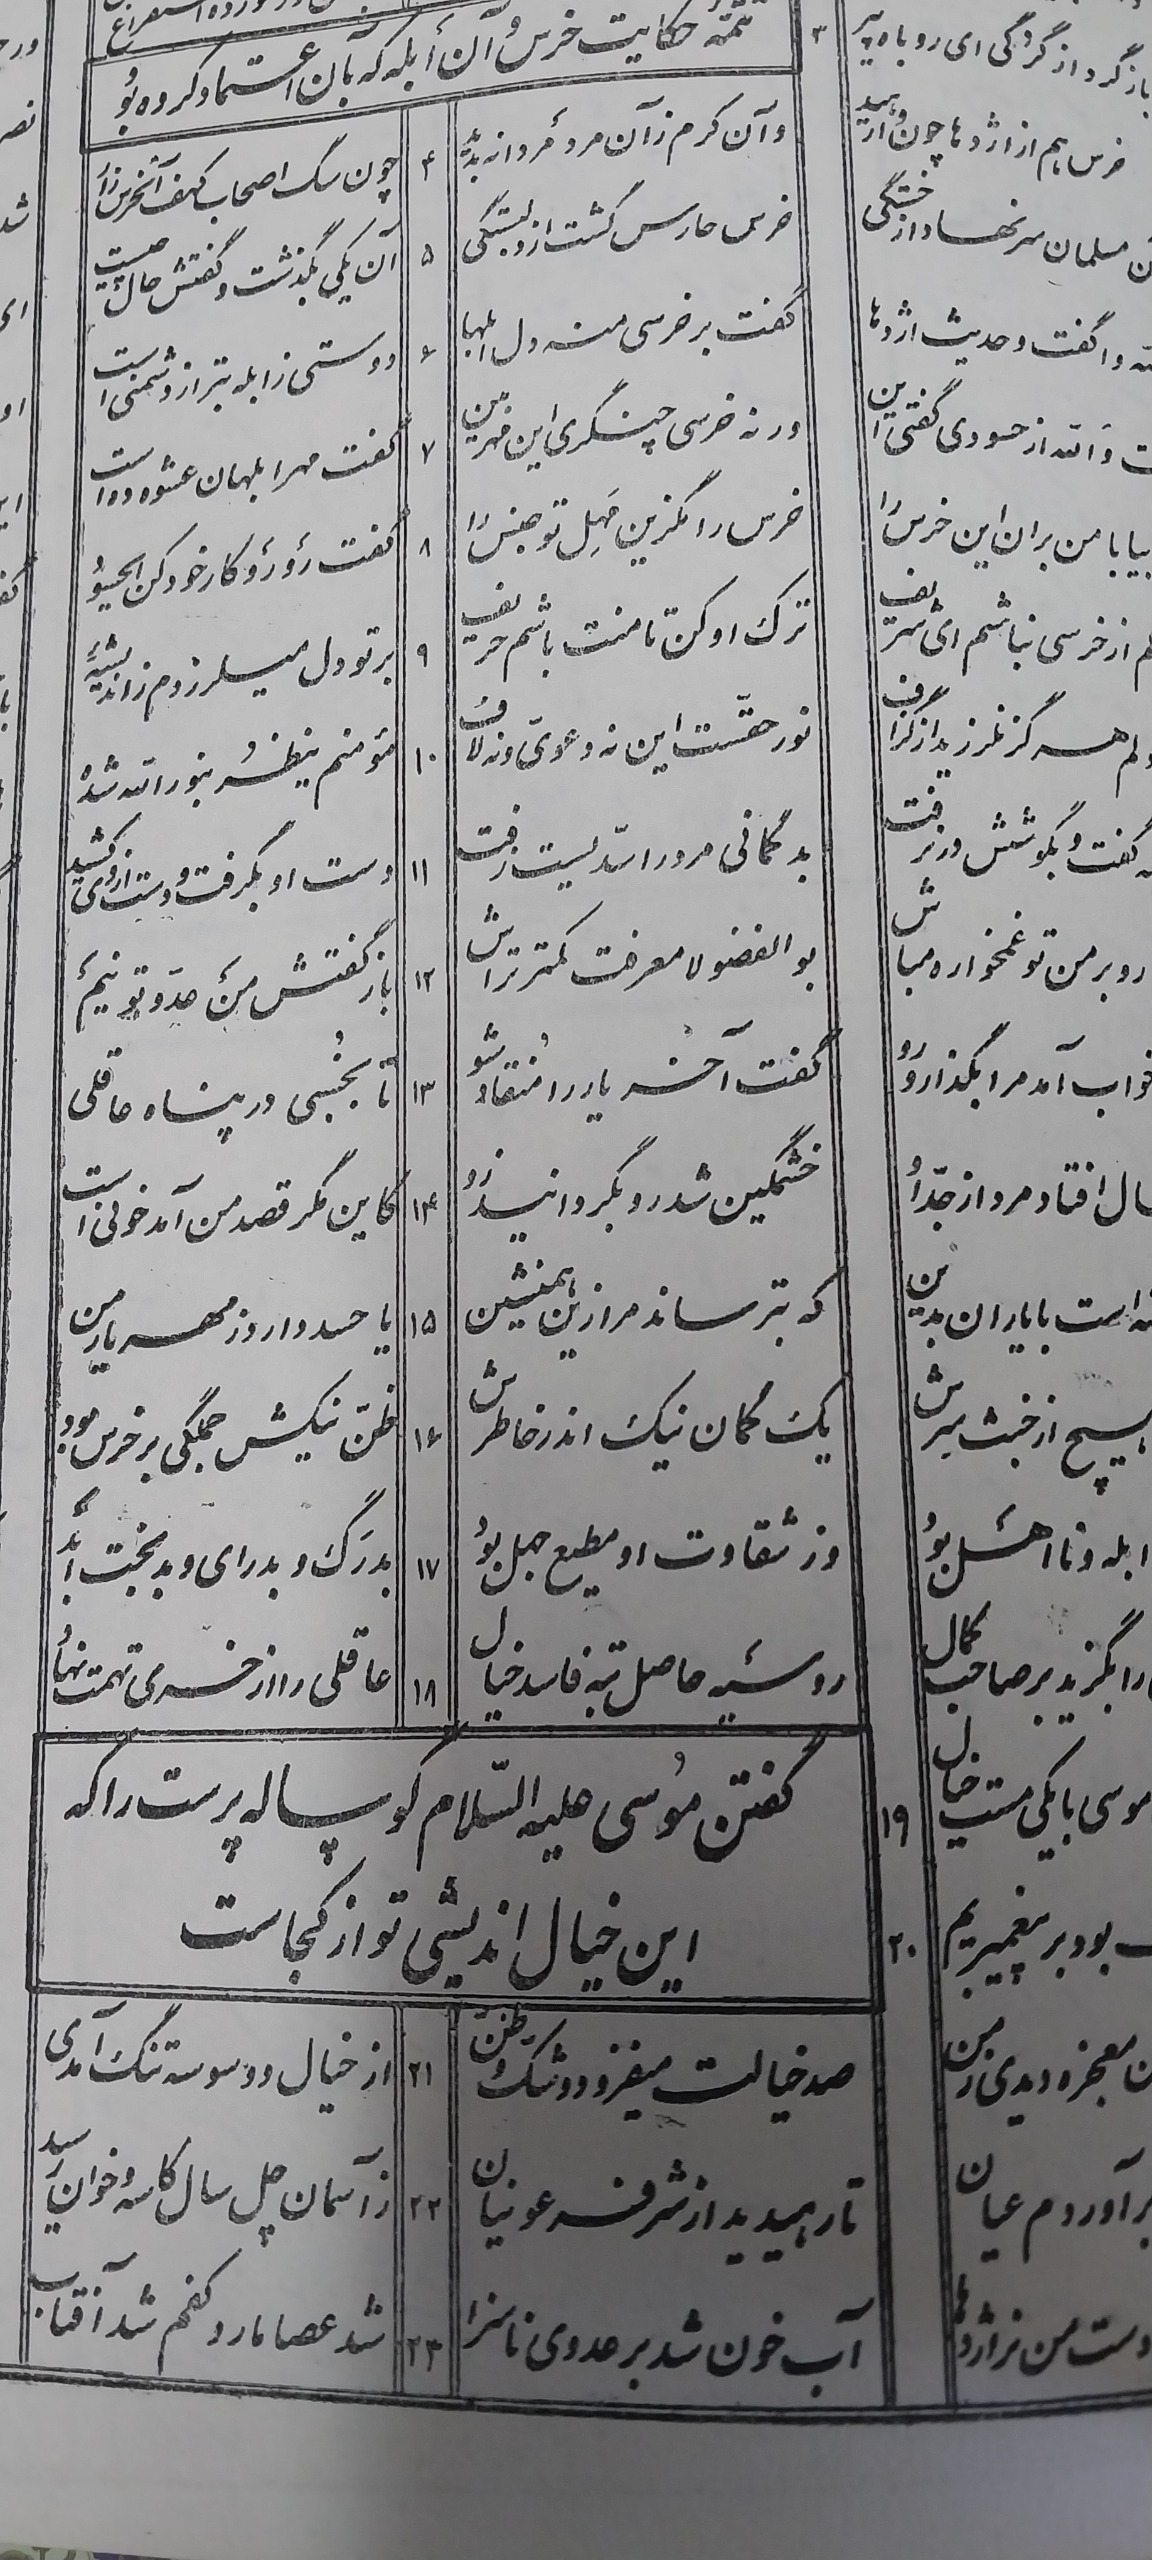 باز گرد از گرگی ای روباه پیر ۳ تتمه حکایت خرس و آن ابله که بآن اعتماد کرده بود
خرس هم از اژدها چون وارهید وآن کرم زآن مرد مردانه بدید ۴ چون سگ اصحاب کهف آنخرس زار
مسلمان سر نهاد از خستگی خرس حارس گشت از دلبستگی ۵ آن یکی بگذشت و گفتش حال چیست
واگفت و حدیث اژدها گفت بر خرسی منه دل ابلها ۶ دوستی ز ابله بتر از دشمنی است
والله از حسودی گفتی این ورنه خرسی چنگری این مهر بین ۷ گفت مهر ابلهان عشوه ده است
بیا با من بران این خرس را خرس را مگزین مهل تو جنس را ۸ گفت رو رو کار خود کن ای حسود
از خرسی نباشم ای شریف ترک او کن تا منت باشم حریف ۹ بر تو دل میلرزدم ز اندیشه
هرگز نلرزید از گزاف نور حقست این نه دعوی و نه لاف ۱۰ مؤمنم ینظر بنور الله شده
گفت و بگوشش در نرفت بدگمانی مرد را سدیست زفت ۱۱ دست او بگرفت و دست از وی کشید
رو بر من تو غمخواره مباش بوالفضولا معرفت کمتر تراش ۱۲ باز گفتش من عدو تو نیم
خواب آمد مرا بگذار و رو گفت آخر یار را منقاد شو ۱۳ تا بخسبی در پناه عاقلی
افتاد مرد از جد او خشمگین شد رو بگردانید زو ۱۴ کاین مگر قصد من آمد خونی است
است با یاران بدین که بترساند مرا زین همنشین ۱۵ یا حسد دارد ز مهر یار من
هیچ از خبث سرش یک گمان نیک اندر خاطرش ۱۶ ظن نیکش جملگی بر خرس بود
ابله و نا اهل بود وز شقاوت او مطیع جهل بود ۱۷ بدرگ و بدرای و بدبخت ابد
را بگزید بر صاحب کمال روسیه حاصل تبه فاسد خیال ۱۸ عاقلی را از خری تهمت نهاد
گفتن موسی علیه السلام گوساله پرست را که
این خیال اندیشی تو از کجاست
موسی با یکی مست خیال ۱۹
بود بر پیغمبریم ۲۰
معجزه دیدی ز من صد خیالت میفزود و شک و ظن ۲۱ از خیال و وسوسه تنگ آمدی
برآوردم عیان تا رهیدید از شر فرعونیان ۲۲ ز آسمان چل سال کاسه و خوان رسید
دست من نر اژدها آب خون شد بر عدوی ناسزا ۲۳ شد عصا مار و کفم شد آفتاب